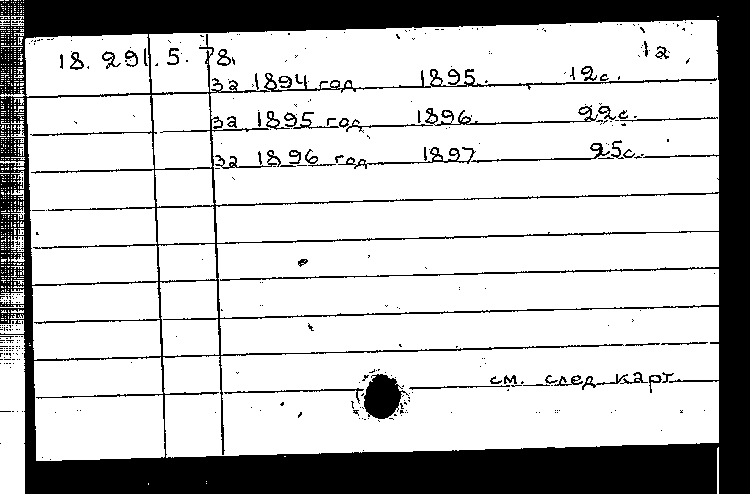 18.291.5.78. 1а
за 1894 год 1895. 12с.
за 1895 год 1896. 22с.
за 1896 год 1897 25с.
см. след карт.